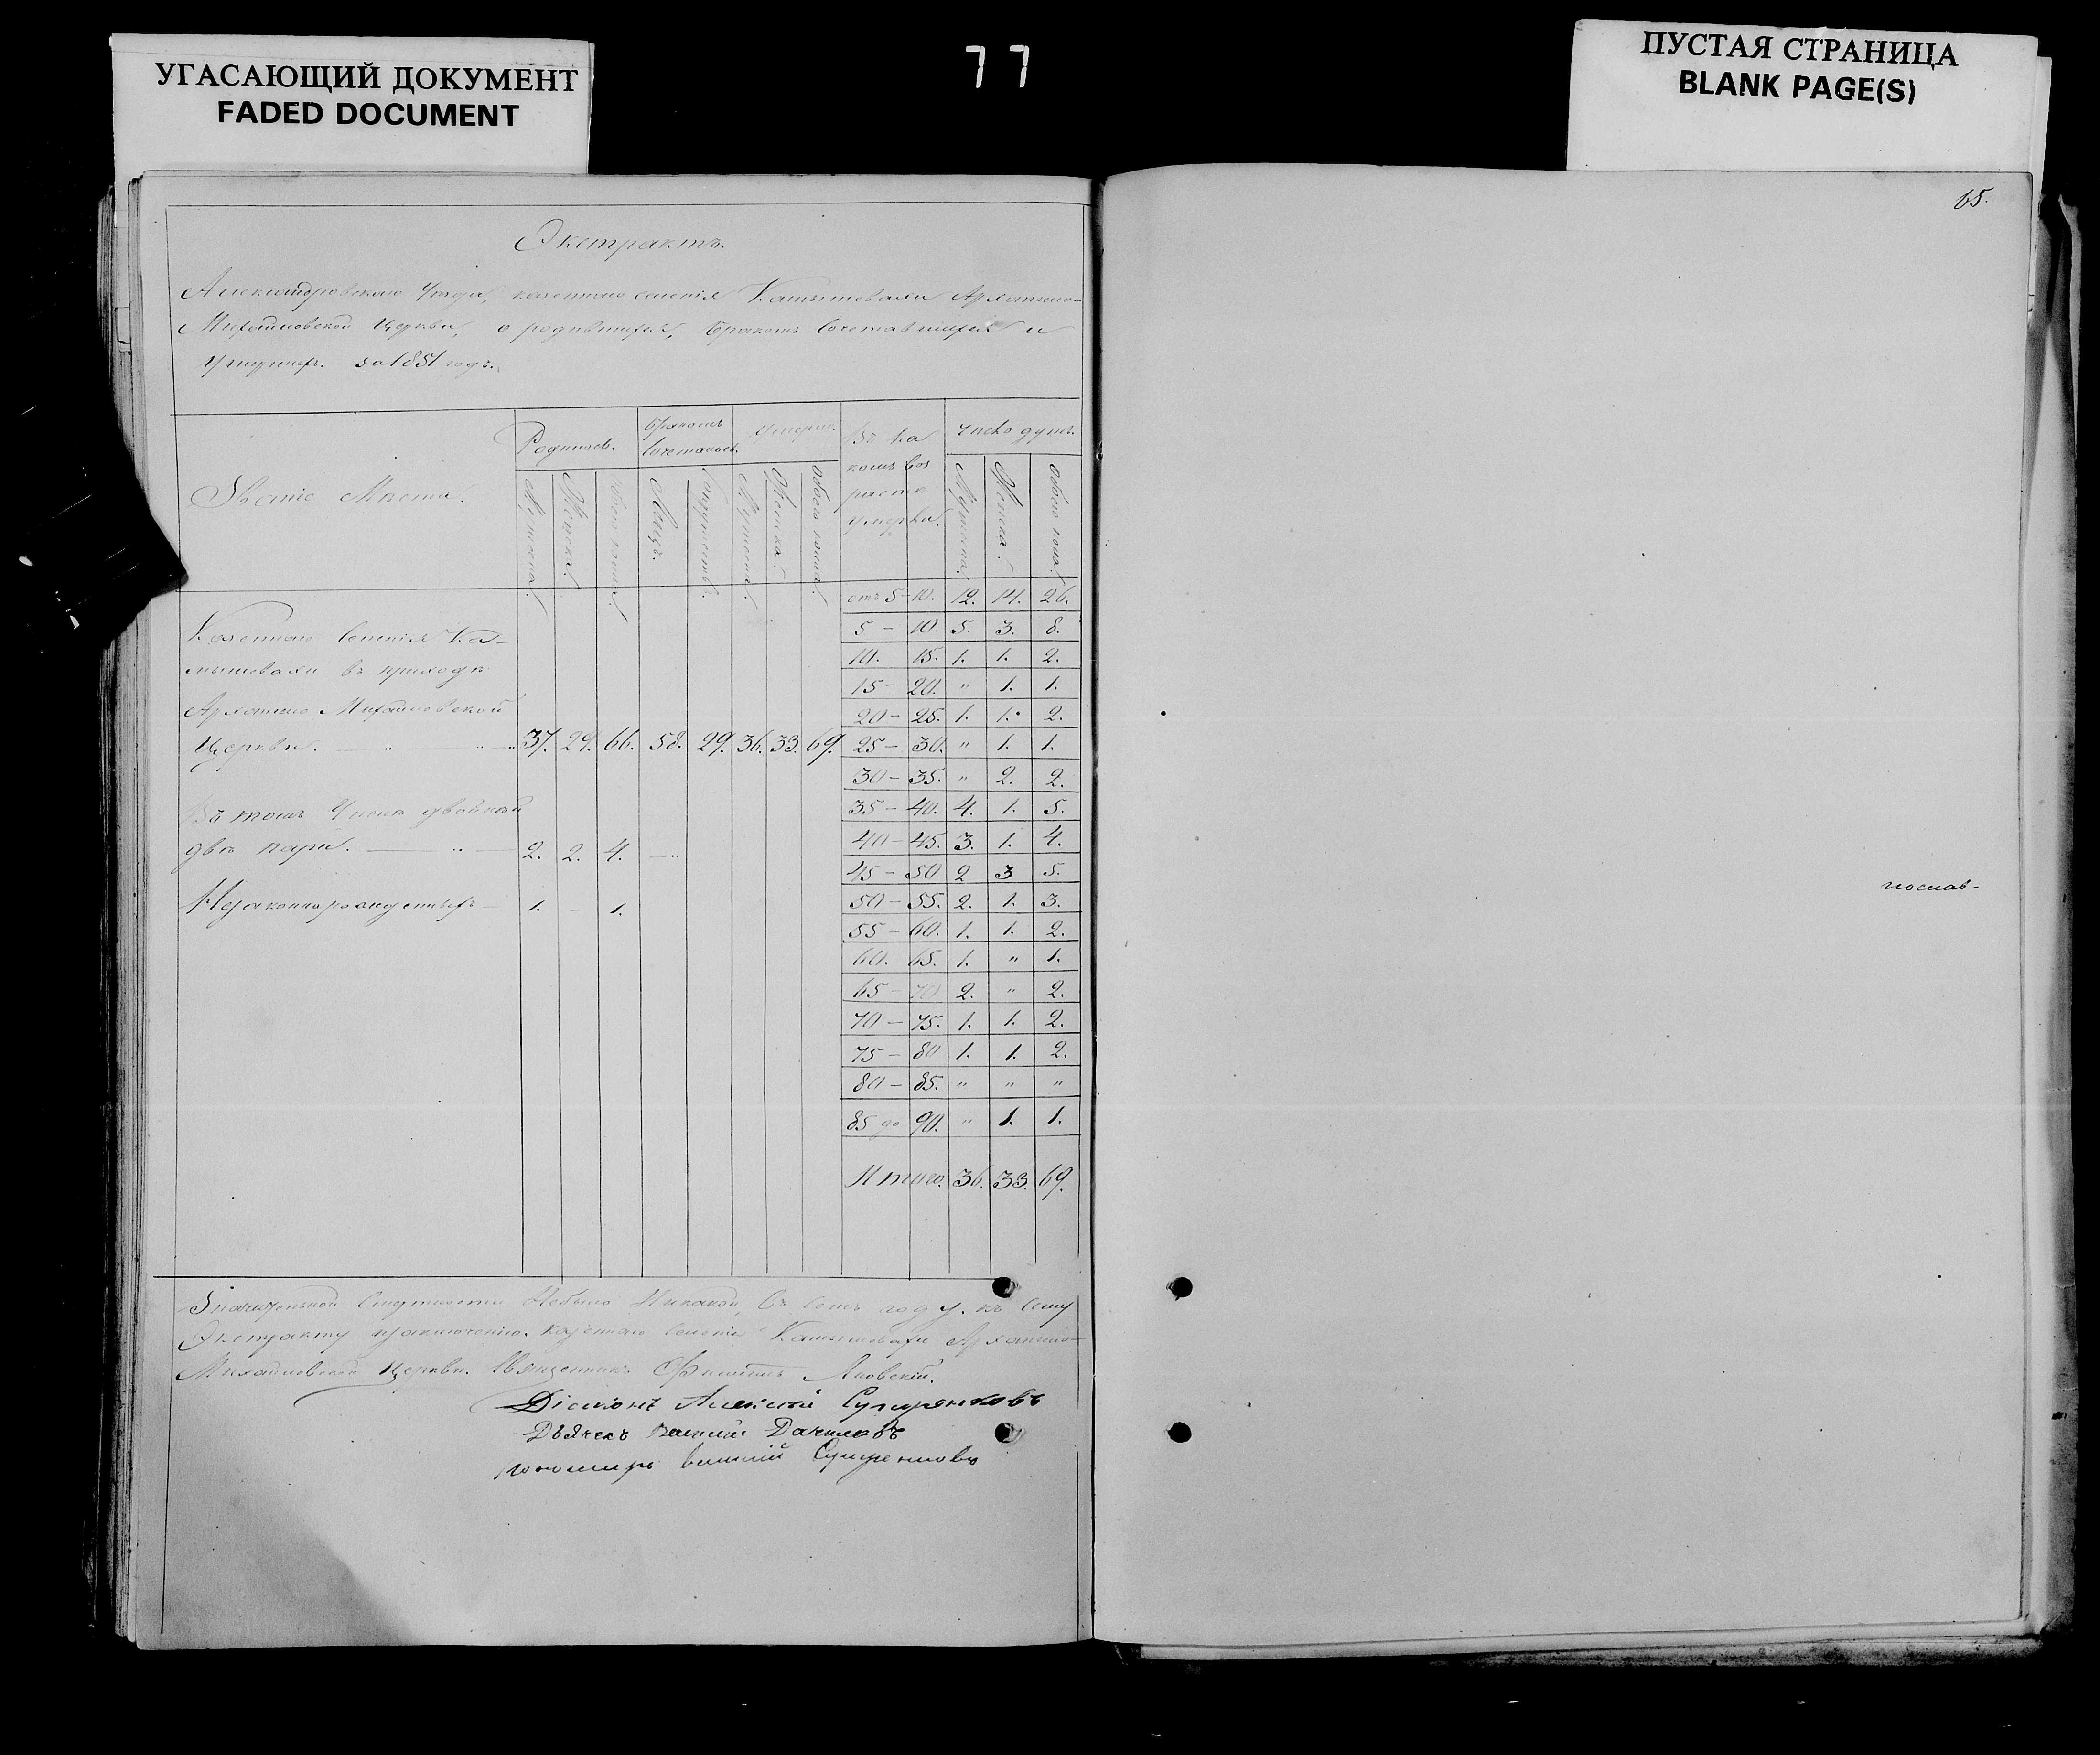 УГАСАЮЩИЙ ДОКУМЕНТ
FADED DOCUMENT
77
ПУСТАЯ СТРАНИЦА
BLANK PAGE(S)
65.
Экстрактъ.
Александровскаго Уѣзда, казеннаго селенія Камышевахи Архангело-
Михайловской Церкви, о родившихся, бракомъ сочетавшихся и
умершихъ за 1851 годъ.
Званіе Мѣста.
Родилось.
бракомъ
сочеталось.
умерло.
Въ ка
комъ воз
растѣ
умерли.
число душъ.
Мужеска.
Женска.
Обоего пола.
Лицъ.
Супружествъ.
Мужеска.
Женска.
Обоего пола.
Мужеска.
Женска.
Обоего пола.
отъ 5 - 10. 12. 14. 26.
5 - 10. 5. 3. 8.
10. 15. 1. 1. 2.
15 - 20. „ 1. 1.
20 - 25. 1. 1. 2.
25 - 30. „ 1. 1.
30 - 35. „ 2. 2.
35 - 40. 4. 1. 5.
40 - 45. 3. 1. 4.
45 - 50 2 3 5.
50 - 55. 2. 1. 3.
55 - 60. 1. 1. 2.
60. 65. 1. „ 1.
65 - 70 2. „ 2.
70 - 75. 1. 1. 2.
75 - 80 1. 1. 2.
80 - 85. „ „ „
85 до 90. „ 1. 1.
Итого. 36. 33. 69.
Казеннаго селенія Ка-
мышевахи въ приходѣ
Архангело Михайловской
Церкви. 37. 29. 66. 58. 29. 36. 33. 69.
Въ томъ Числѣ двойней
двѣ пары. 2. 2. 4.
Незаконнорожденныхъ 1. - 1.
Значительной смертности Небыло Никакой въ семъ году. къ сему
Экстракту казеннаго селенія Камышевахи Архангело-
Михайловской Церкви. Священникъ Яновскій.
Діаконъ Алексѣй
Дьячекъ Василій
Пономарь Василій